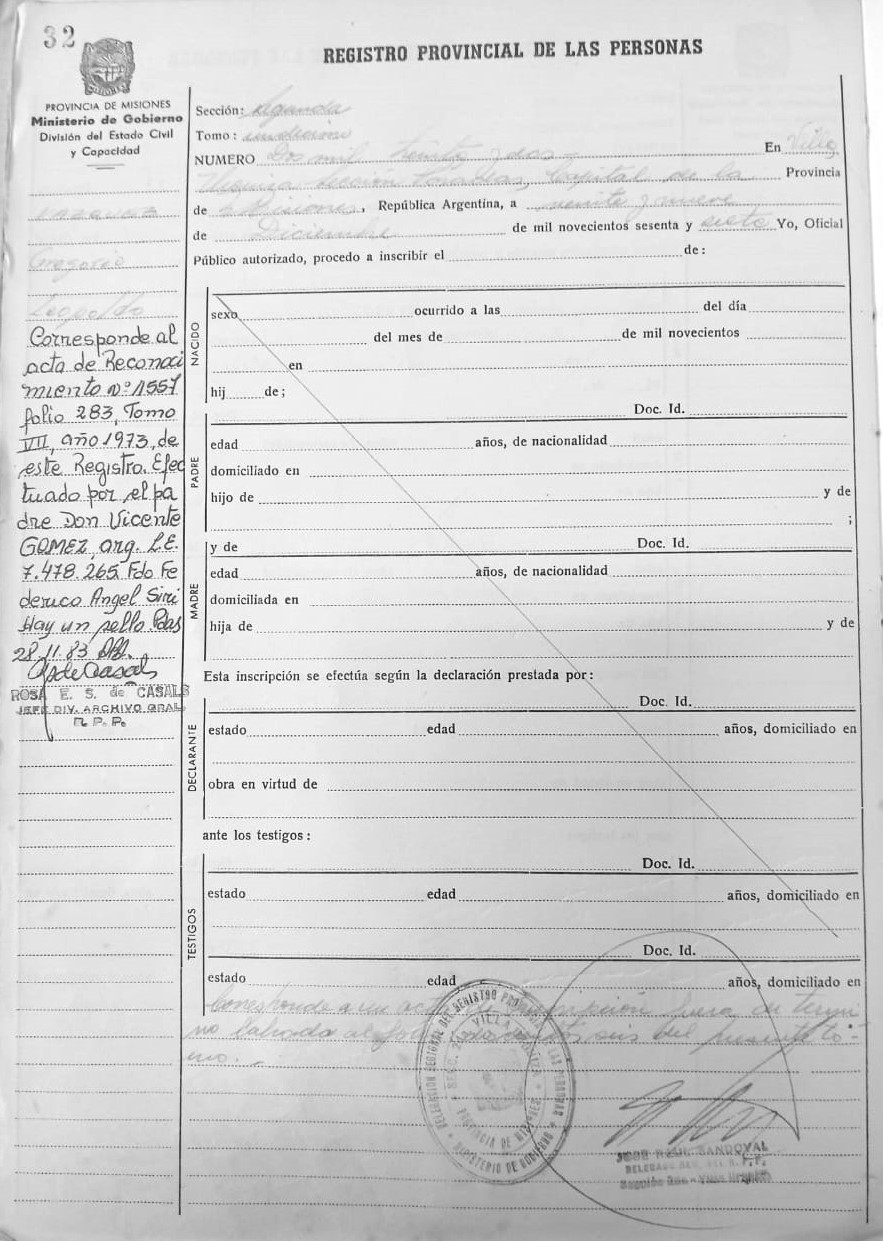 32
REGISTRO PROVINCIAL DE LAS PERSONAS
PROVINCIA DE MISIONES
Ministerio de Gobierno
División del Estado Civil
y Capacidad
Gregorio
Leopoldo
Corresponde al
acta de Reconoci
miento Nº 1557
folio 283, Tomo
VII, año 1973, de
este Registro. Efec
tuado por el pa
dre Don Vicente
GOMEZ, arg. L.E.
7.478.265 Fdo Fe
derico Angel Siri
Hay un sello. Pdas
28.11.83
ROSA E. S. de CASALS
JEFE DIV. ARCHIVO GRAL
R. P. P.
Sección: segunda
Tomo:
NUMERO Dos mil treinta y dos En Villa
Urquiza sección Posadas, Capital de la Provincia
de Misiones, República Argentina, a veinte y nueve
de Diciembre de mil novecientos sesenta y siete Yo, Oficial
Público autorizado, procedo a inscribir el de:
NACIDO
sexo ocurrido a las del día
del mes de de mil novecientos
en
hij de;
PADRE
Doc. Id.
edad años, de nacionalidad
domiciliado en
hijo de y de
;
MADRE
y de Doc. Id.
edad años, de nacionalidad
domiciliada en
hija de y de
Esta inscripción se efectúa según la declaración prestada por:
DECLARANTE
Doc. Id.
estado edad años, domiciliado en
obra en virtud de
ante los testigos:
TESTIGOS
Doc. Id.
estado edad años, domiciliado en
Doc. Id.
estado edad años, domiciliado en
Corresponde a un acta de inscripción fuera de térmi
no labrada al folio doscientos seis del presente to-
mo.
DELEGACION REGIONAL DEL REGISTRO PROVINCIAL DE LAS PERSONAS
VILLA URQUIZA
PROVINCIA DE MISIONES
MINISTERIO DE GOBIERNO
JOSE RAUL SANDOVAL